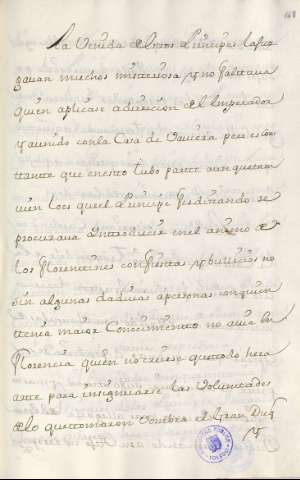 La Venida de estos Principes la juz
gauan muchos misteriosa, y no faltaua
quien aplicase aduersion del Emperador
y aunido con la Casa de Vauiera pero es con
stante que en esto tubo parte aunque tam
uien Loes que el Principe Ferdinando se
procuraua introducir en el animo de
los florentines con fiestas y bullicios no
sin algunas dadiuas a personas con quien
tenia maior Conocimiento no auia en
Florencia quien no creiese que todo hera
arte para insignuarse las Voluntades
de lo que tomaron Sombra el Gran Duq
y